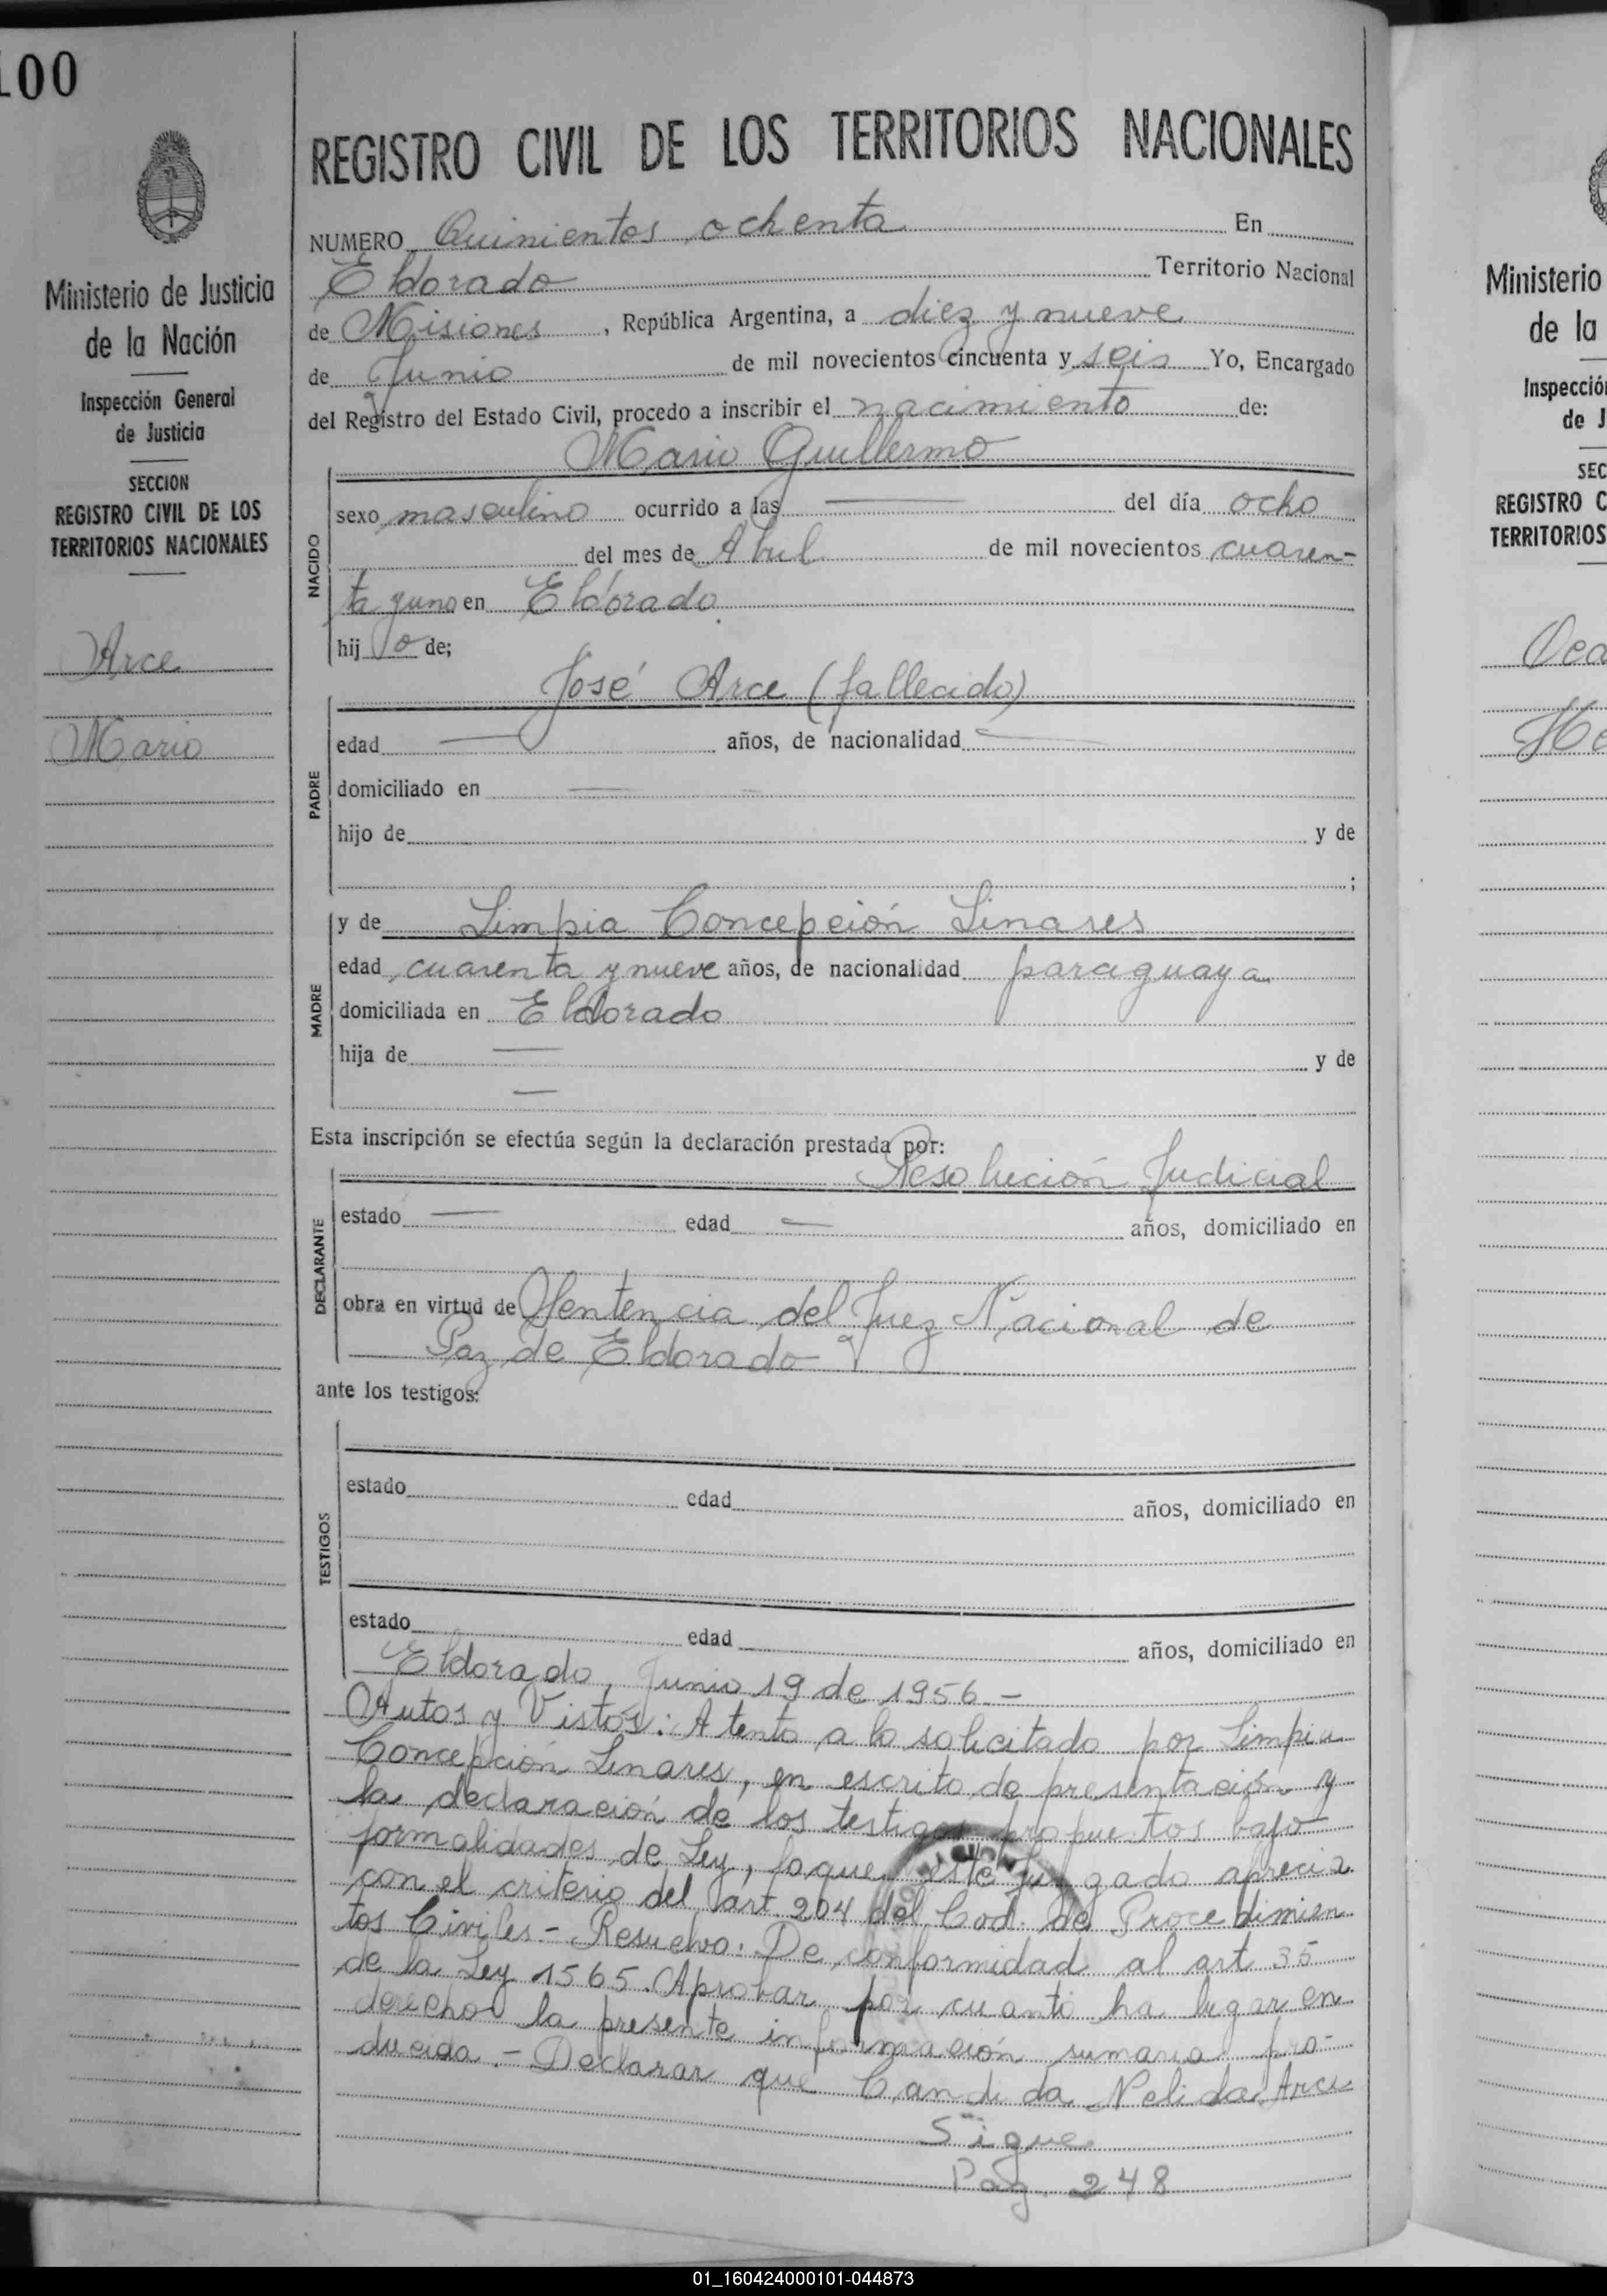 100
Ministerio de Justicia
de la Nación
Inspección General
de Justicia
SECCION
REGISTRO CIVIL DE LOS
TERRITORIOS NACIONALES
Arce
Mario
REGISTRO CIVIL DE LOS TERRITORIOS NACIONALES
NUMERO Quinientos ochenta En
Eldorado Territorio Nacional
de Misiones, República Argentina, a diez y nueve
de Junio de mil novecientos cincuenta y seis Yo, Encargado
del Registro del Estado Civil, procedo a inscribir el nacimiento de:
Mario Guillermo
NACIDO
sexo masculino ocurrido a las — del día ocho
del mes de Abril de mil novecientos cuaren-
ta y uno en Eldorado.
hijo de;
José Arce (fallecido)
PADRE
edad — años, de nacionalidad —
domiciliado en —
hijo de y de
;
y de Limpia Concepción Linares
MADRE
edad cuarenta y nueve años, de nacionalidad paraguaya
domiciliada en Eldorado
hija de — y de
—
Esta inscripción se efectúa según la declaración prestada por:
Resolución Judicial
DECLARANTE
estado — edad — años, domiciliado en
obra en virtud de Sentencia del Juez Nacional de
Paz de Eldorado
ante los testigos:
TESTIGOS
estado edad años, domiciliado en
estado edad años, domiciliado en
Eldorado, Junio 19 de 1956 -
Autos y Vistos: Atento a lo solicitado por Limpia
Concepción Linares, en escrito de presentación y
la declaración de los testigos propuestos bajo
formalidades de Ley, lo que este Juzgado aprecia
con el criterio del art. 204 del Cod. de Procedimien
tos Civiles - Resuelvo: De conformidad al art 35
de la Ley 1565. Aprobar por cuanto ha lugar en
derecho la presente información sumaria pro-
ducida. - Declarar que Candida Nelida Arce
Sigue
Pag. 248
Ministerio
de la
Inspección
de J
SEC
REGISTRO C
TERRITORIOS
01_160424000101-044873